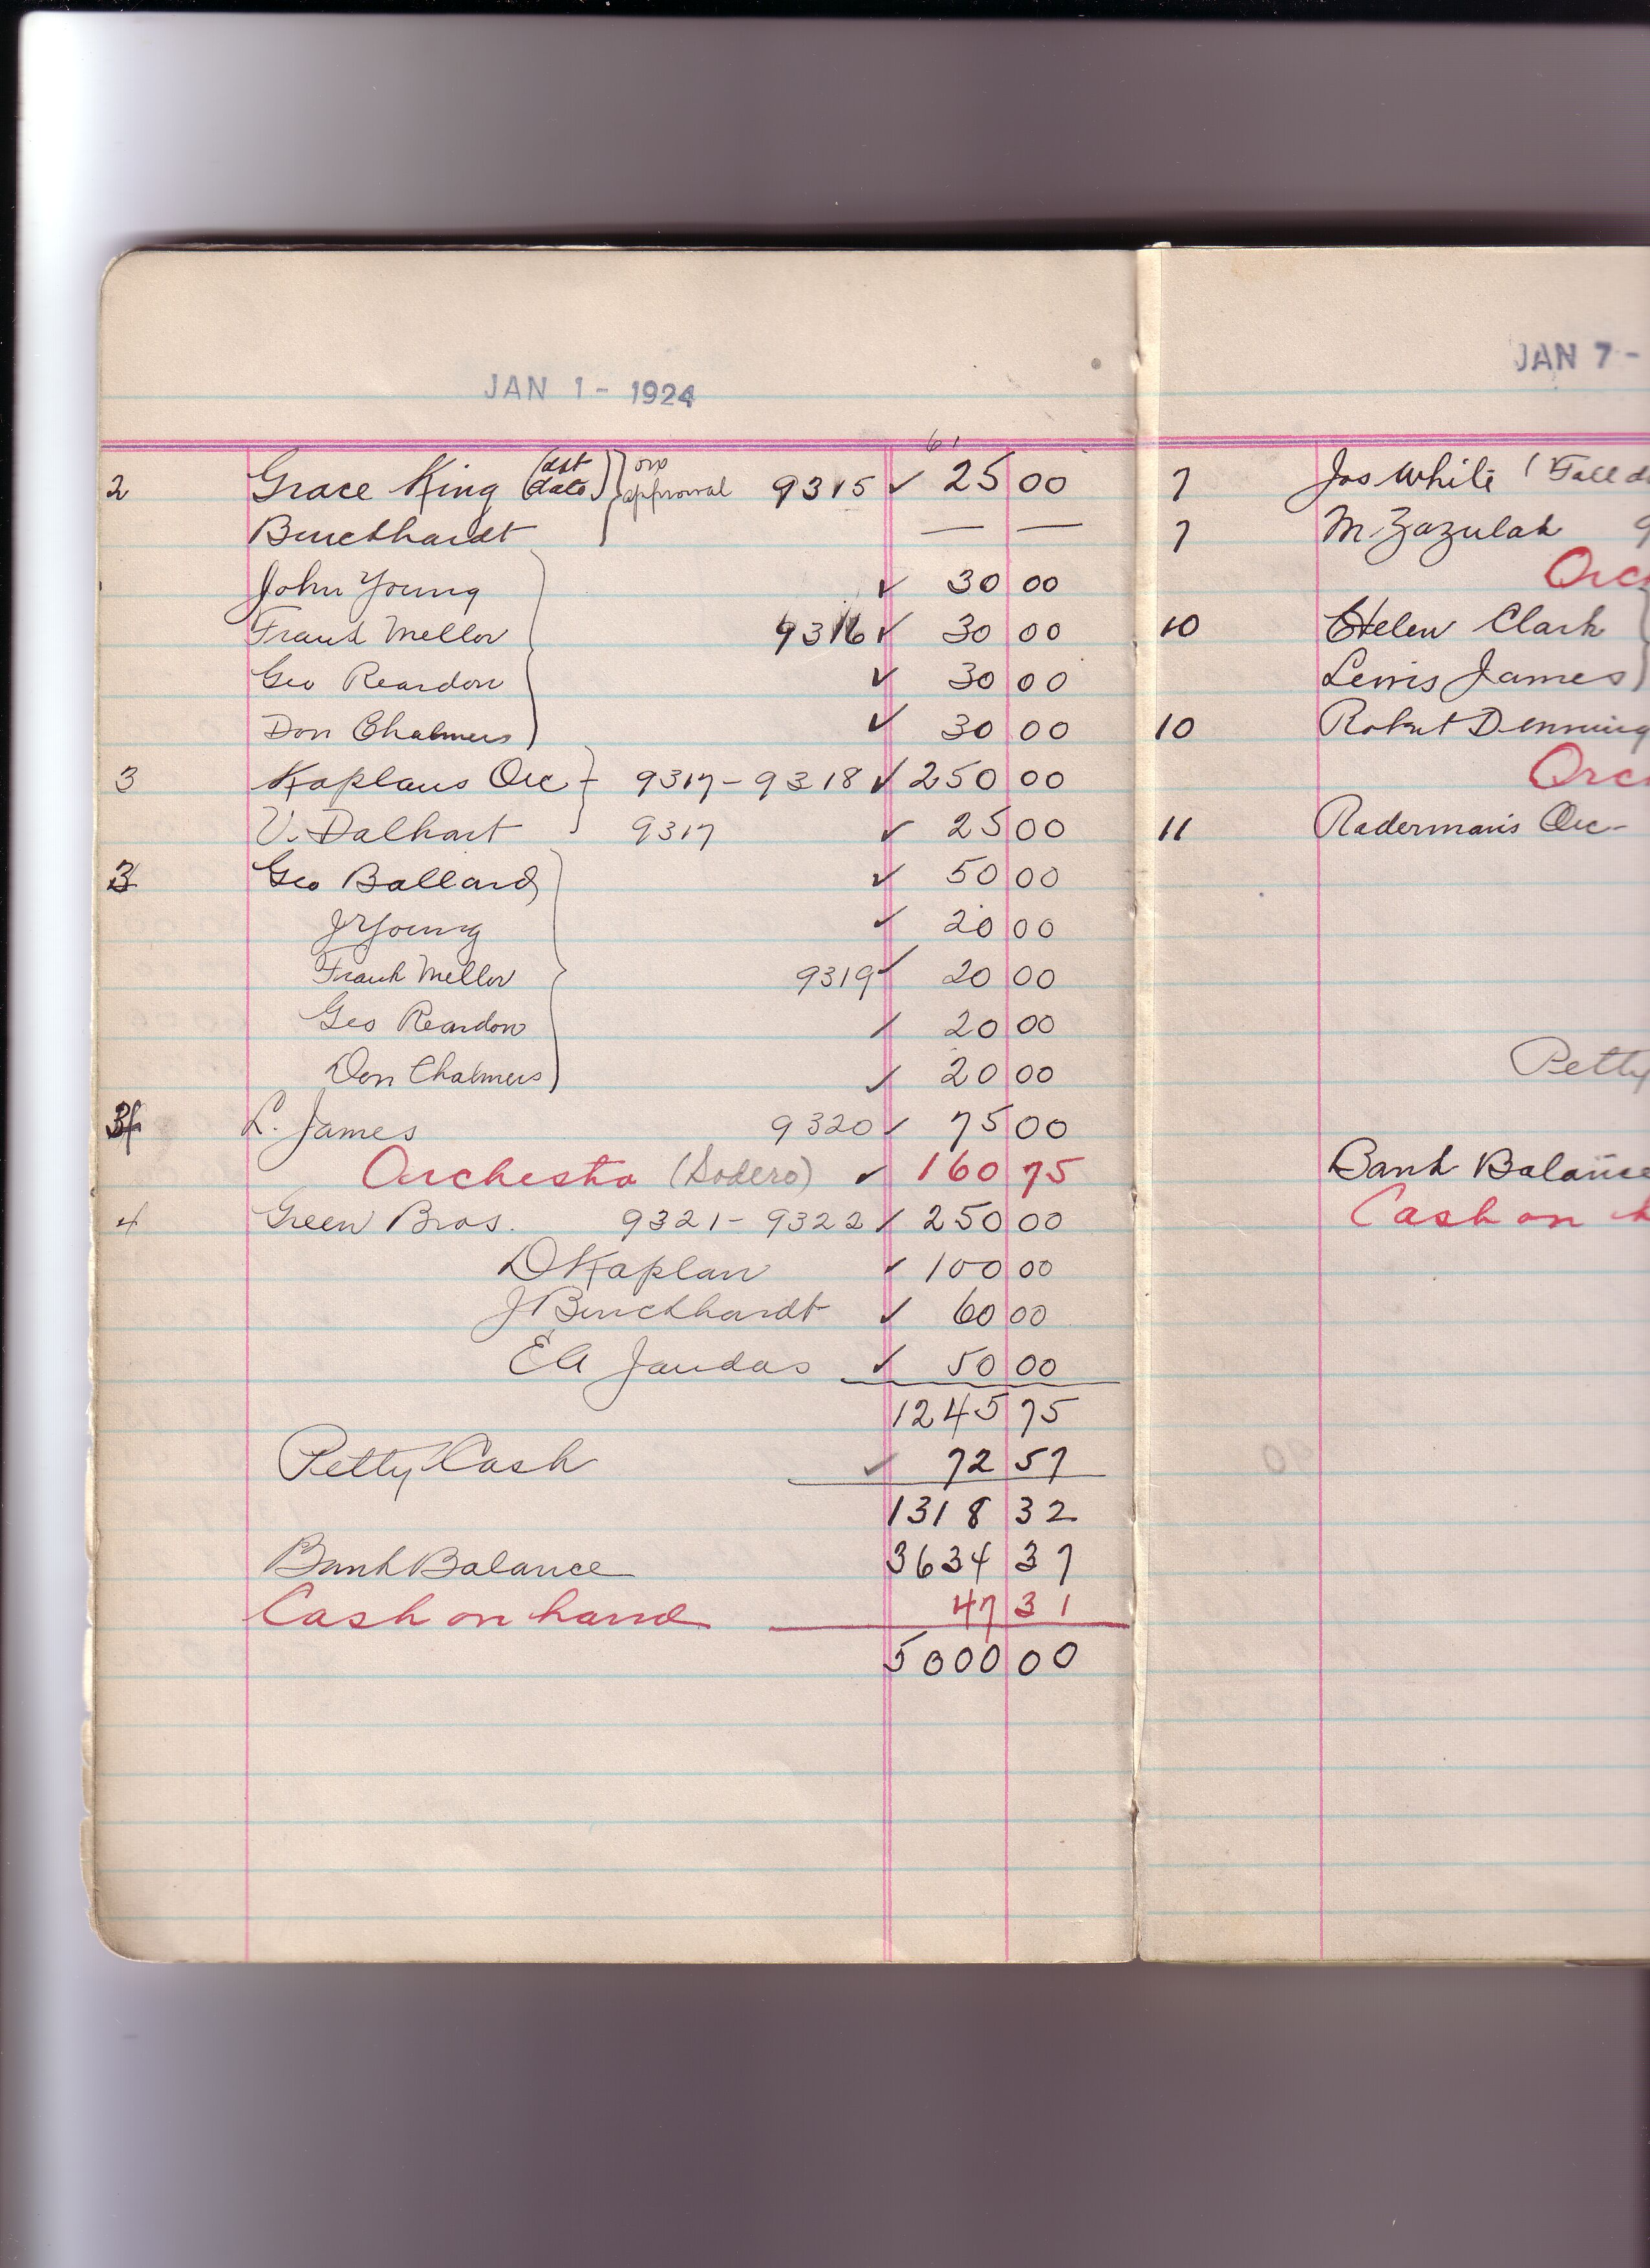 JAN 1 - 1924
61
2 Grace King (1st date) on approval 9315 ✓ 25 00
Burckhardt — —
John Young ✓ 30 00
Frank Mellor 9316 ✓ 30 00
Geo Reardon ✓ 30 00
Don Chalmers ✓ 30 00
3 Kaplans Orc 9317 - 9318 ✓ 250 00
V. Dalhart 9317 ✓ 25 00
3 Geo Ballard ✓ 50 00
J Young ✓ 20 00
Frank Mellor 9319 ✓ 20 00
Geo Reardon ✓ 20 00
Don Chalmers ✓ 20 00
L. James 9320 ✓ 75 00
Orchestra (Sodero) ✓ 160 75
4 Green Bros. 9321 - 9322 ✓ 250 00
D Kaplan ✓ 100 00
J Burckhardt ✓ 60 00
E A Jandas ✓ 50 00
1245 75
Petty Cash ✓ 72 57
1318 32
Bank Balance 3634 37
Cash on hand 47 31
5000 00
JAN 7 -
7 Jos White (Full d
7 M. Zazulak 9
Orc
10 Helen Clark
Lewis James
10 Robert Denning
Orc
11 Raderman's Orc -
Petty
Bank Balance
Cash on h